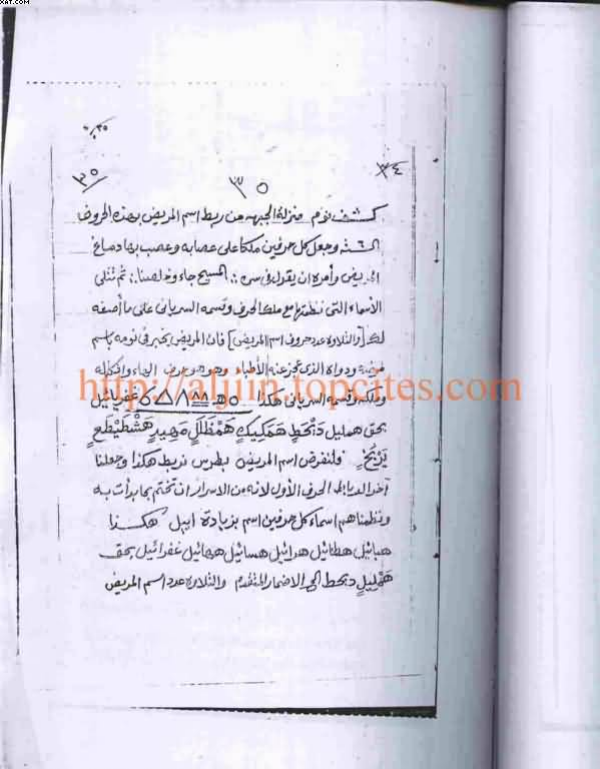 XAT.COM
٣٥
٣٥ ٣٥ ٣٤
كشف نوم منزلة الجبهه من ربط اسم المريض بهذه الحروف
الستة وجعل كل حرفين ملكا على عصابه وعصب بها دماغ
المريض وأمره ان يقول في سره المسيح جاء وخلصنا ثم تتلى
الأسماء التى نظمتها مع ملك الحرف وقسمه السريانى على ما أصفه
لك [والتلاوة عدد حروف اسم المريض] فان المريض يخبر فى نومه باسم
مرضه ودواه الذى عجز عنه الأطباء وهو هو حرف الهاء واشكله
وملكه وقسمه السريانى هكذا غفرائيل
http://aljiin.topcites.com
بحق همليل دنحط همكيك همظلل مهيد هشطيطع
فلنفرض اسم المريض بطرس نربط هكذا وجعلنا
آخر الرابط الحرف الأول لانه من الاسرار ان تختم بما بدأت به
ونظمناهم اسماء كل حرفين اسم بزيادة اييل هكذا
هبائيل هطائيل هرائيل هسائيل ههائيل غفرائيل بحق
همليل دنحط الى الاضمار المتقدم والتلاوة عدد اسم المريض